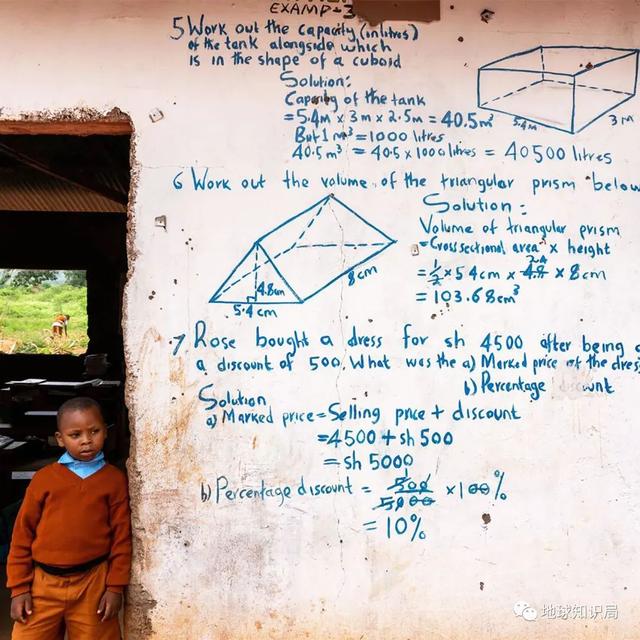 EXAMP
5 Work out the capacity (in litres)
of the tank alongside which
is in the shape of a cuboid
Solution:
Capacity of the tank
= 5.4m x 3m x 2.5m = 40.5m³
But 1m³ = 1000 litres
40.5m³ = 40.5 x 1000 litres = 40500 litres
5.4m
3m
6 Work out the volume of the triangular prism below
4.8cm
5.4cm
8cm
Solution:
Volume of triangular prism
= Cross sectional area x height
= 1/2 x 5.4cm x 4.8 x 8cm
2.4
= 103.68cm³
7 Rose bought a dress for sh 4500 after being
a discount of 500. What was the a) Marked price of the dres
b) Percentage
Solution
a) Marked price = Selling price + discount
= 4500 + sh 500
= sh 5000
b) Percentage discount = 500/5000 x 100%
1
= 10%
地球知识局